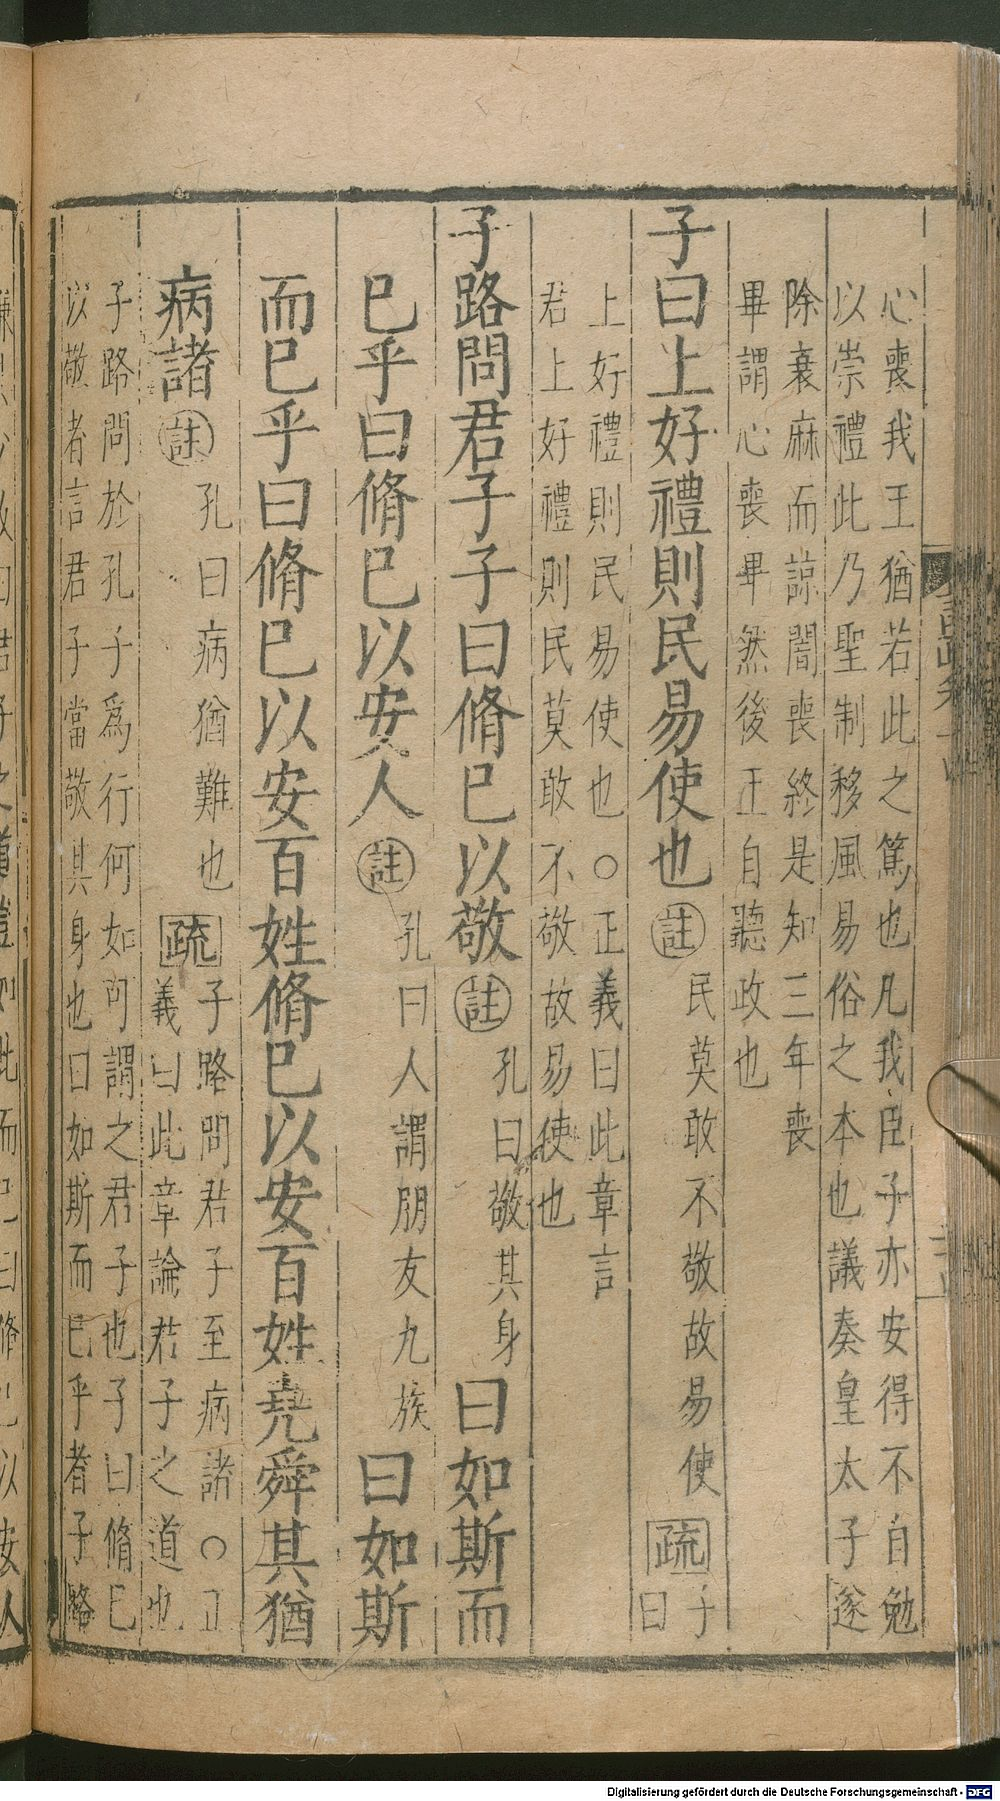 心喪我王猶若此之篤也凡我臣子亦安得不自勉
以崇禮此乃聖制移風易俗之本也議奏皇太子遂
除衰麻而諒闇喪終是知三年喪
畢謂心喪畢然後王自聽政也
子曰上好禮則民易使也㊟民莫敢不敬故易使疏子
曰
上好禮則民易使也○正義曰此章言
君上好禮則民莫敢不敬故易使也
子路問君子子曰脩已以敬註孔曰敬其身曰如斯而
已乎曰脩已以安人註孔曰人謂朋友九族曰如斯
而已乎曰脩已以安百姓脩已以安百姓堯舜其猶
病諸註孔曰病猶難也疏子路問君子至病諸○正
義曰此章論君子之道也
子路問於孔子為行何如可謂之君子也子曰脩已
以敬者言君子當敬其身也曰如斯而已乎者子路
Digitalisierung gefördert durch die Deutsche Forschungsgemeinschaft - DFG